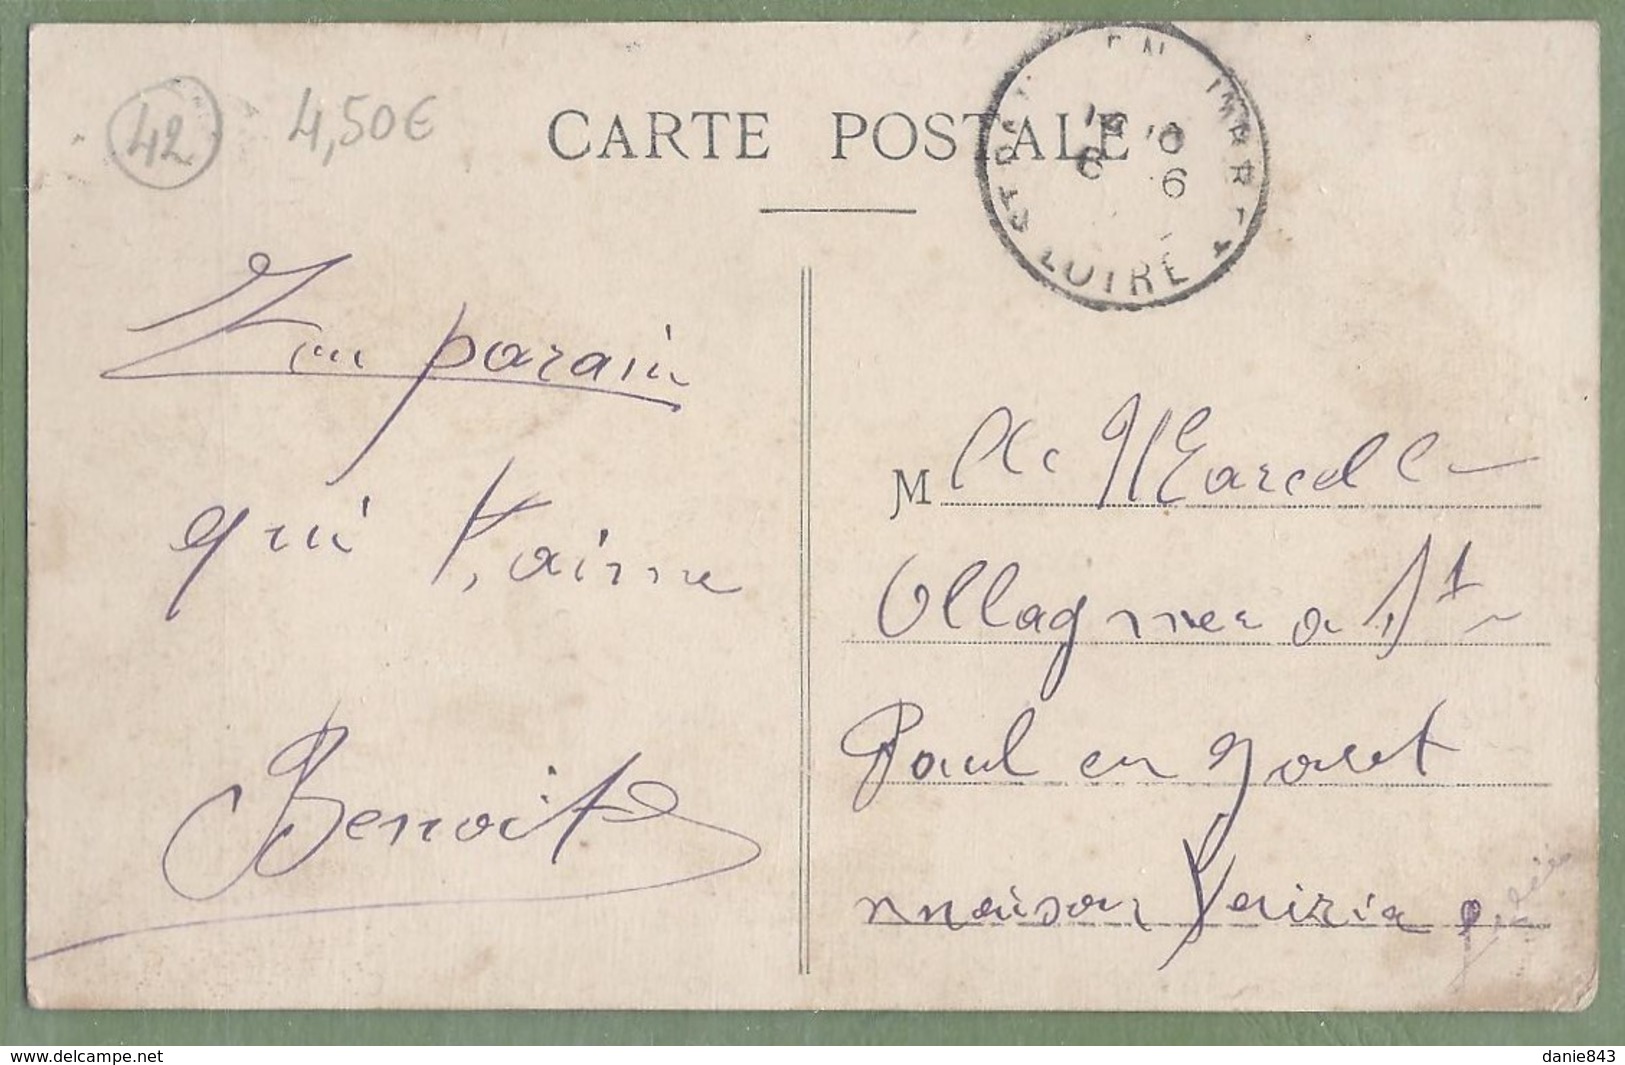 42
4,50€
CARTE POSTALE
LOIRE
Ton parain
qui t'aime
Benoit
M lle Marcelle
Ollagnier a St
Paul en Jaret
maison
www.delcampe.net
danie843